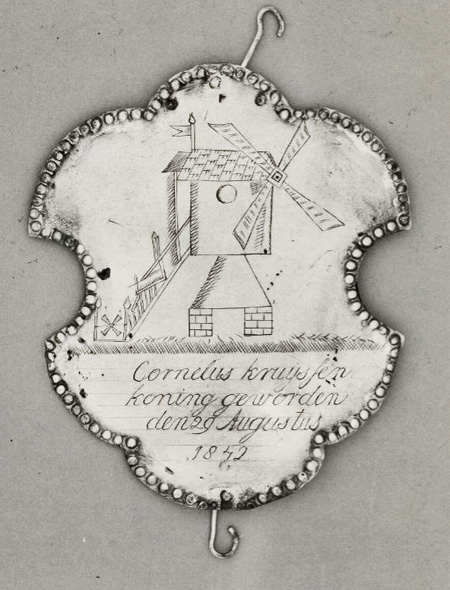 Cornelus kruyssen
koning geworden
den 29 Augustus
1842